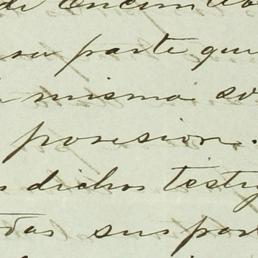 su parte que
misma
posesion.
dichos testi
das sus par